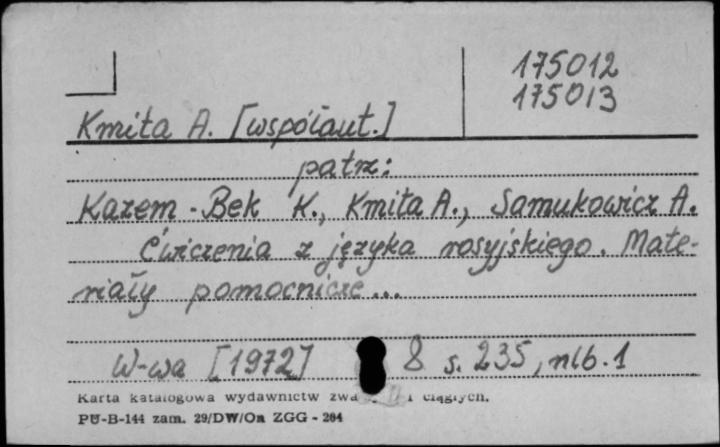 175012
175013
Kmita A. [współaut.]
patrz:
Kazem-Bek K., Kmita A., Samukowicz A.
Ćwiczenia z języka rosyjskiego. Mate-
riały pomocnicze...
W-wa [1972] 8 s. 235, nlb. 1
Karta katalogowa wydawnictw ciągłych.
PU-B-144 zam. 29/DW/On ZGG - 204